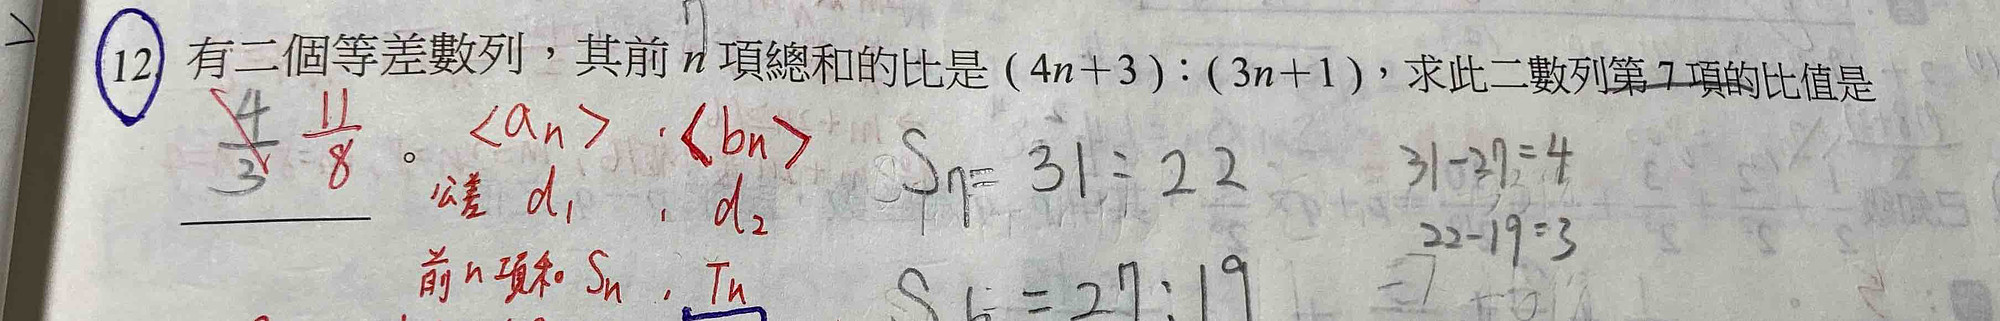 12. 有二個等差數列，其前 n 項總和的比是 (4n+3)：(3n+1)，求此二數列第 7 項的比值是
4/3 11/8 。 <an> , <bn>
公差 d₁ , d₂
前n項和 Sn , Tn
S7= 31:22
31-27=4
22-19=3
S6=27:19